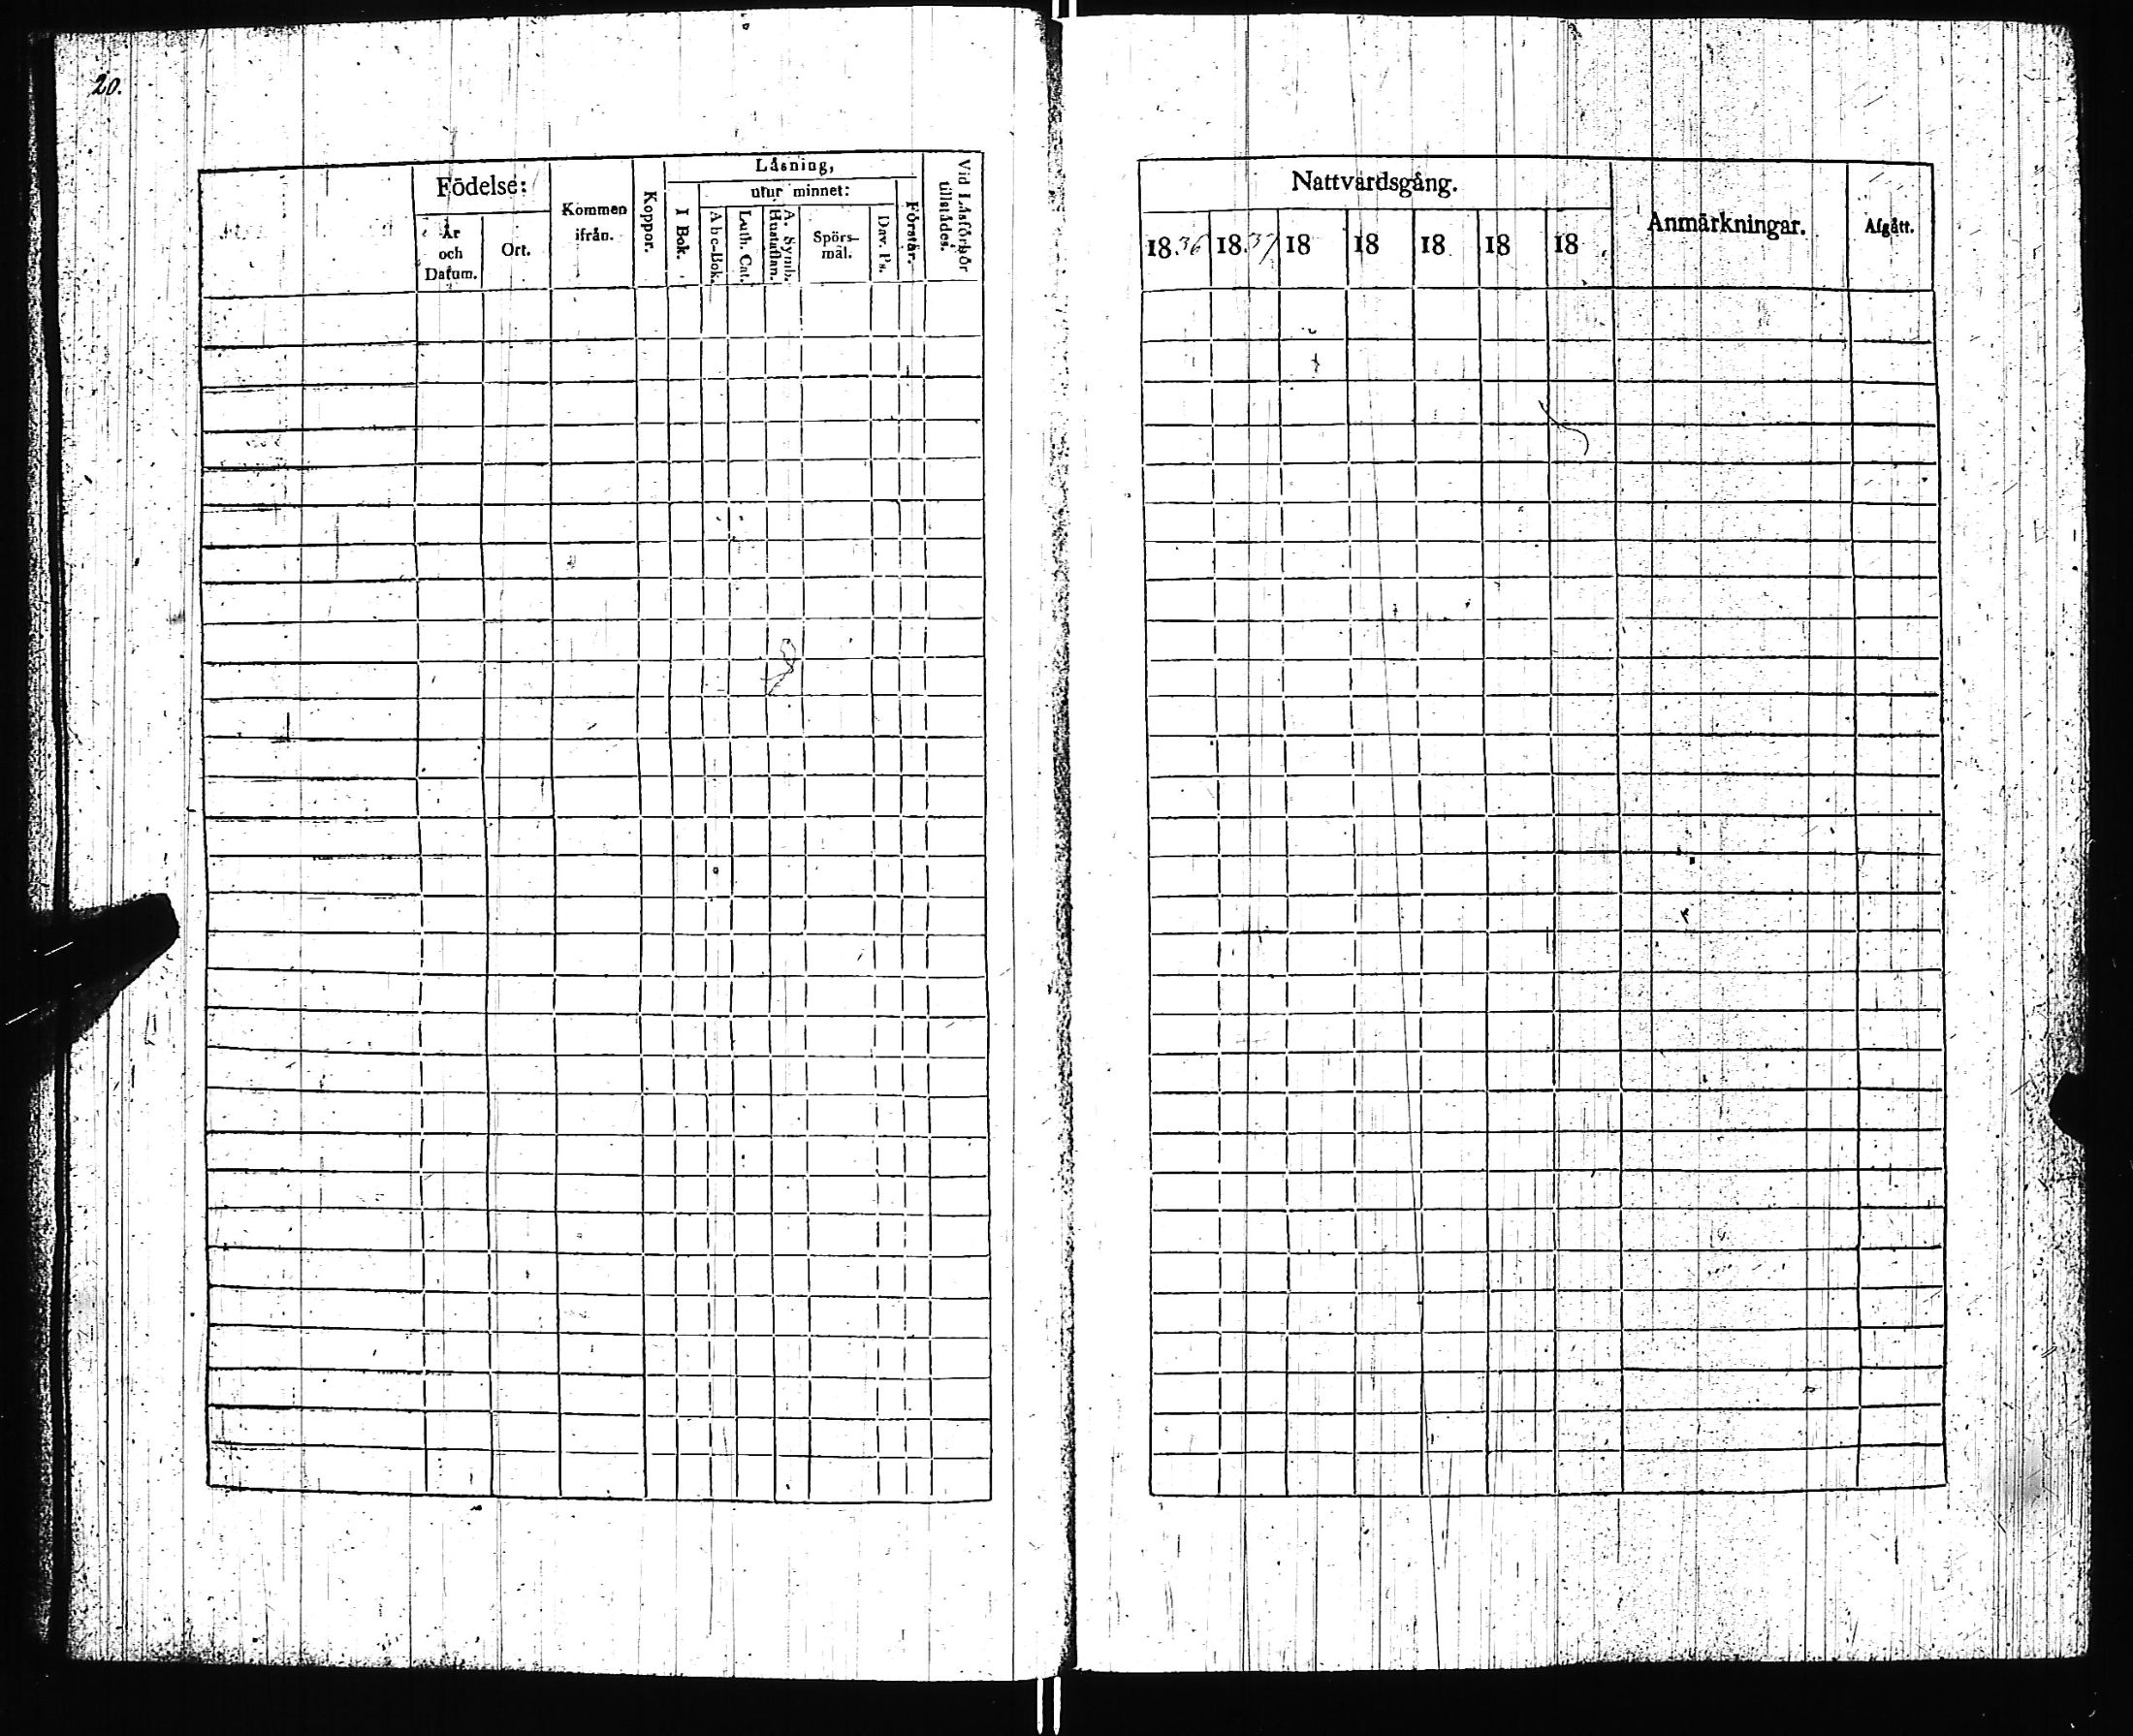 20.
Födelse:
År
och
Datum.
Ort.
Kommen
ifrån.
Koppor.
Låsning,
utur minnet:
I Bok.
Abc-Bok.
Luth. Cat.
A. Symb.
Hustaflan.
Spörs-
mål.
Dav. Ps.
Förstår.
Vid Låsförhör
tillstådes.
Nattvardsgång.
1836 1837 18 18 18 18 18
Anmärkningar.
Afgått.